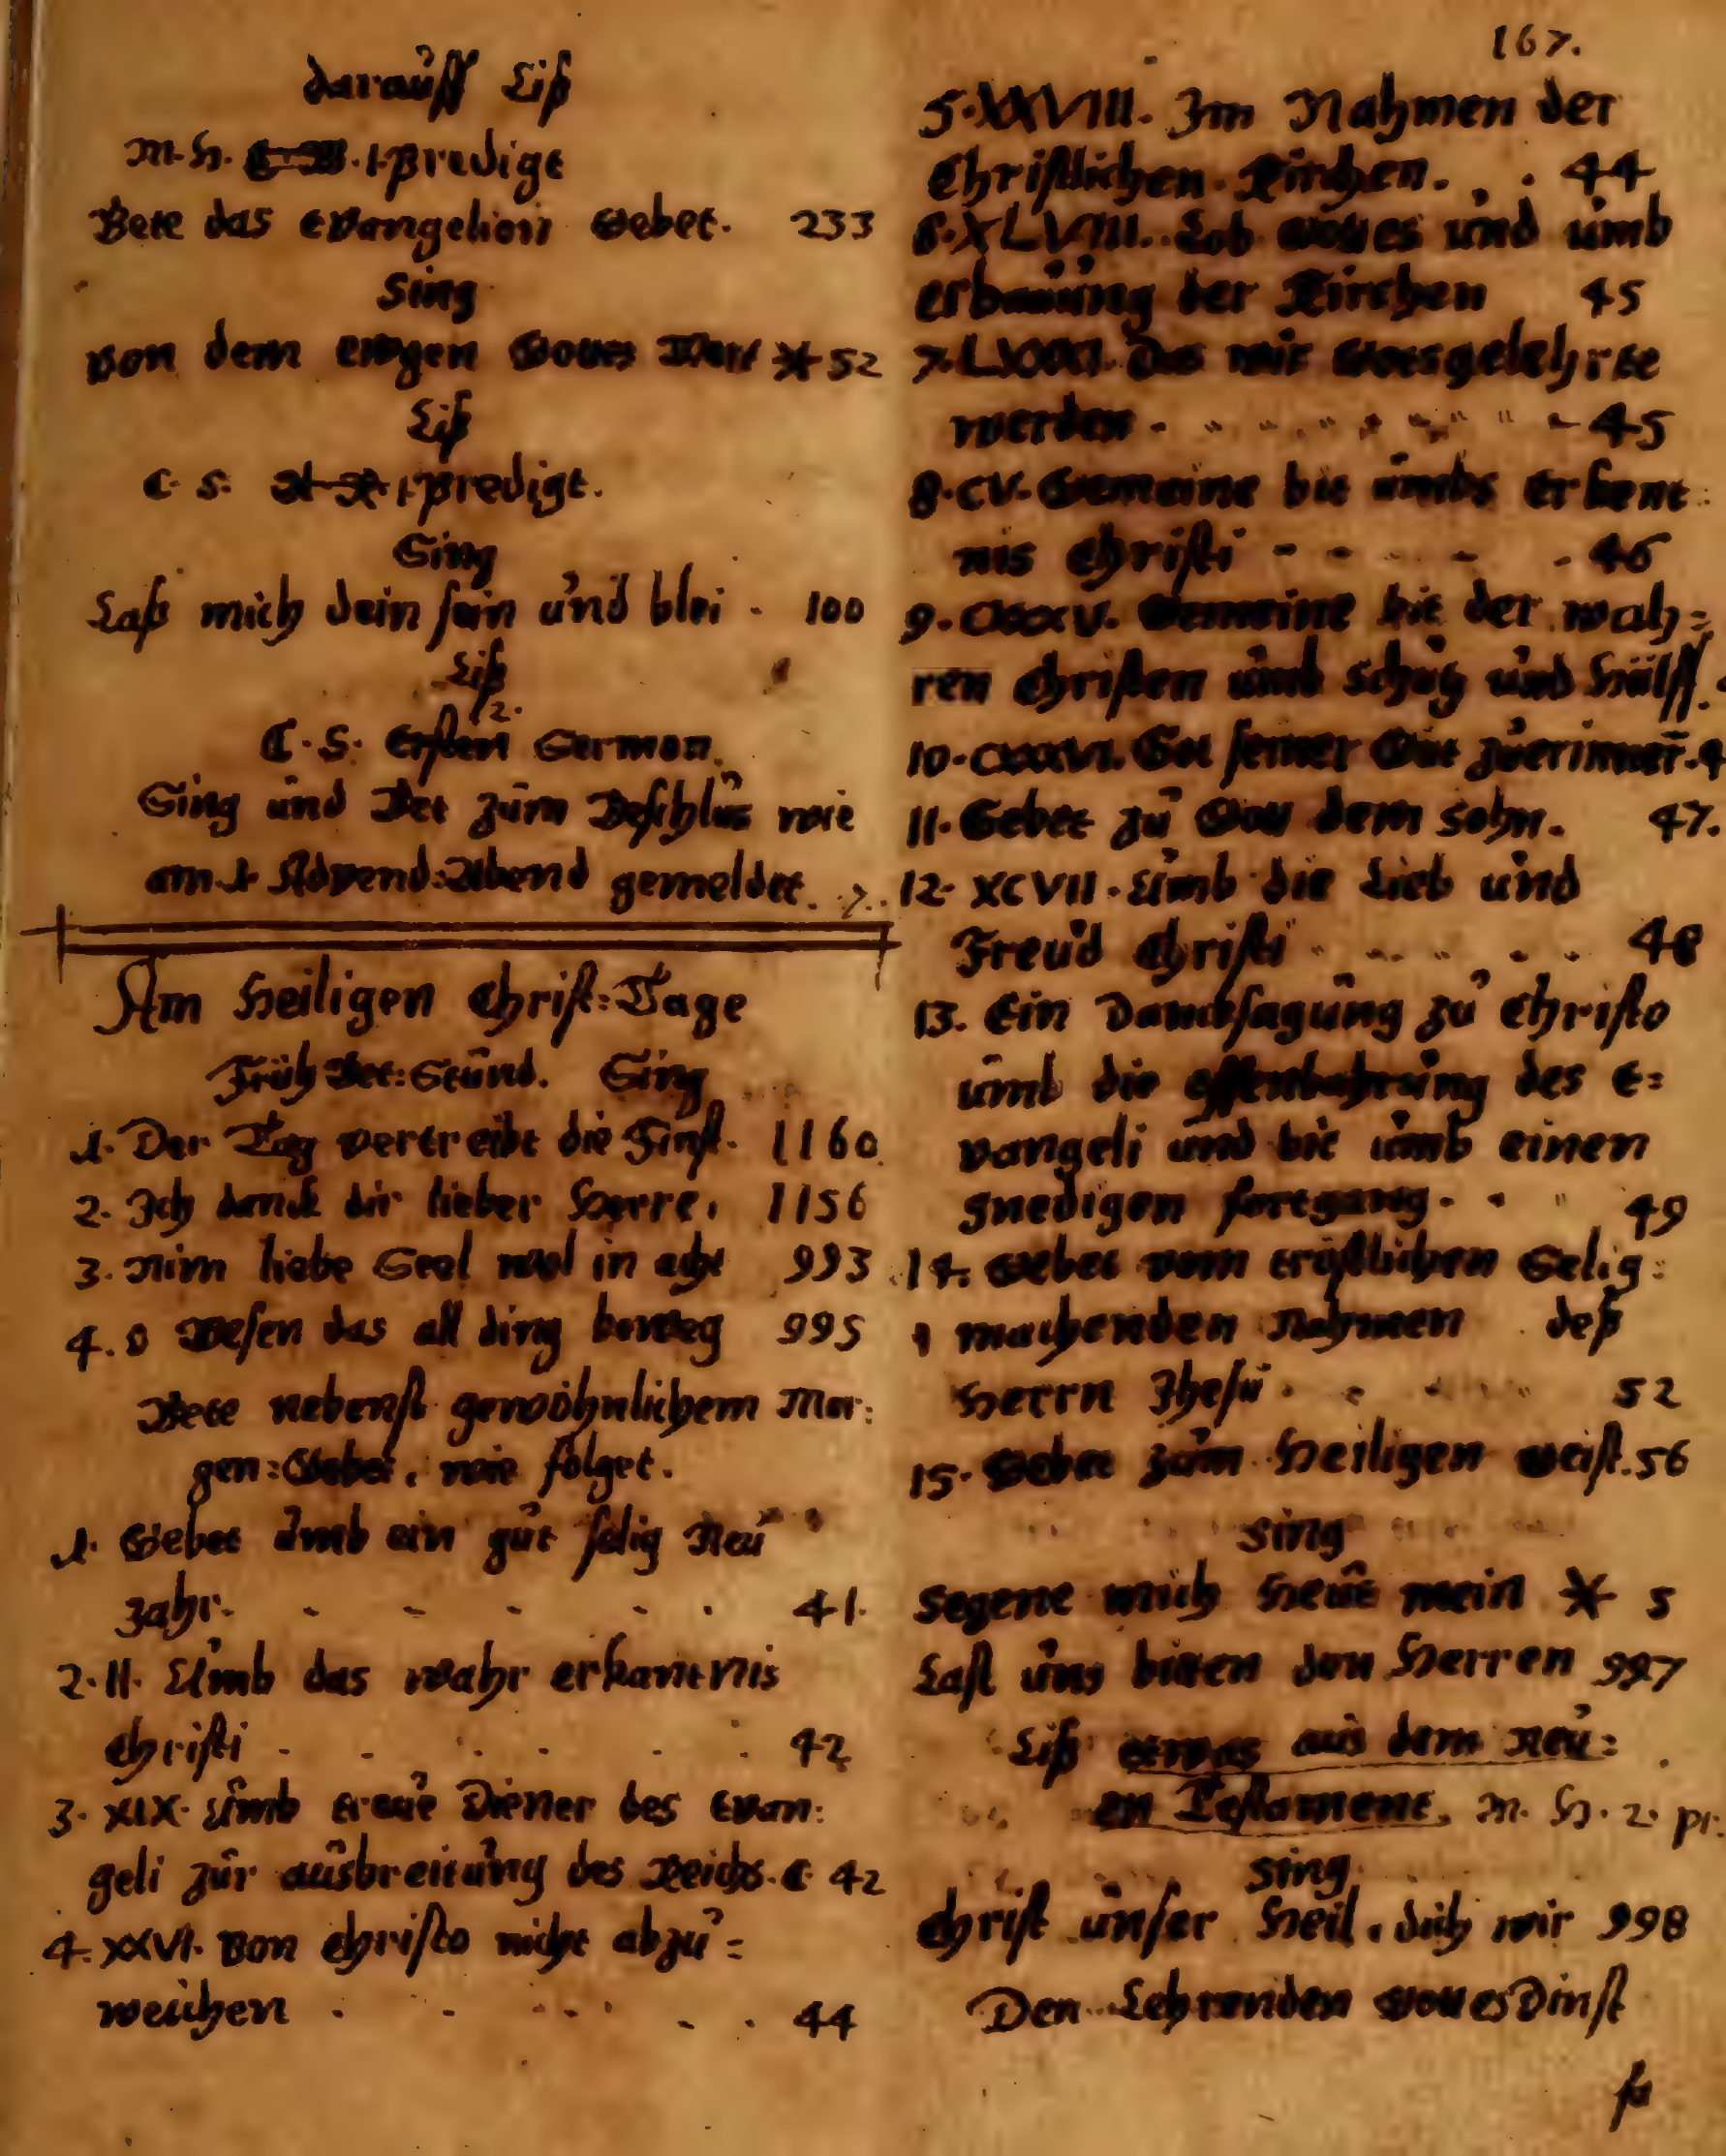 darauff Liß
M. H. 1. Predigt
Bete das Evangelion Gebet. 233
Sing
Von dem ewgen Gottes Wort * 52
Liß
C. S. 1. Predigt.
Sing
Laß mich dein sein und blei - 100
Liß
2.
C. S. Ersten Sermon.
Sing und Bet zum Beschlus wie
am 1. Advend-Abend gemeldet. 7.
Am Heiligen Christ-Tage
Früh Bet-Stund. Sing
1. Der Tag vertreibt die Finst. 1160
2. Ich danck dir lieber Herre, 1156
3. Nim liebe Seel wol in acht 993
4. O Wesen das all ding beweg 995
Bete nebenst gewöhnlichem Mor:
gen:Gebet, wie folget.
1. Gebet umb ein gut selig Neu
Jahr. 41.
2. II. Umb das wahr erkantnis
Christi 42
3. XIX. Umb treue Diener des Evan:
geli zur ausbreitung des Reichs. C. 42
4. XXVI. Von Christo nicht abzu=
weichen 44
167.
5. XXVIII. Im Nahmen der
Christlichen Kirchen. 44
6. XLVIII. Lob Gottes und umb
erbauung der Kirchen 45
7. Das wir Gottsgelehrte
werden 45
8. CV. Gemeine bit umbs Erkent:
nis Christi 46
9. Gemeine bit der wah=
ren Christen umb schutz und Hülff.
10. Got seiner Güt zuerinnern.
11. Gebet zu Gott dem Sohn. 47.
12. XCVII. Umb die Lieb und
Freud Christi 48
13. Ein Dancksagung zu Christo
umb die offenbahrung des E=
vangeli und bit umb einen
gnedigen fortgang. 49
14. Gebet vom tröstlichen Selig:
machenden Nahmen deß
Herrn Jhesu. 52
15. Gebet zum Heiligen Geist. 56
Sing
Segene mich Heut mein * 5
Last uns bitten den Herren 997
Liß etwas aus dem Neu:
en Testament. M. H. 2. pr.
Sing
Christ unser Heil, dich wir 998
Den Lehrenden Gottes Dinst